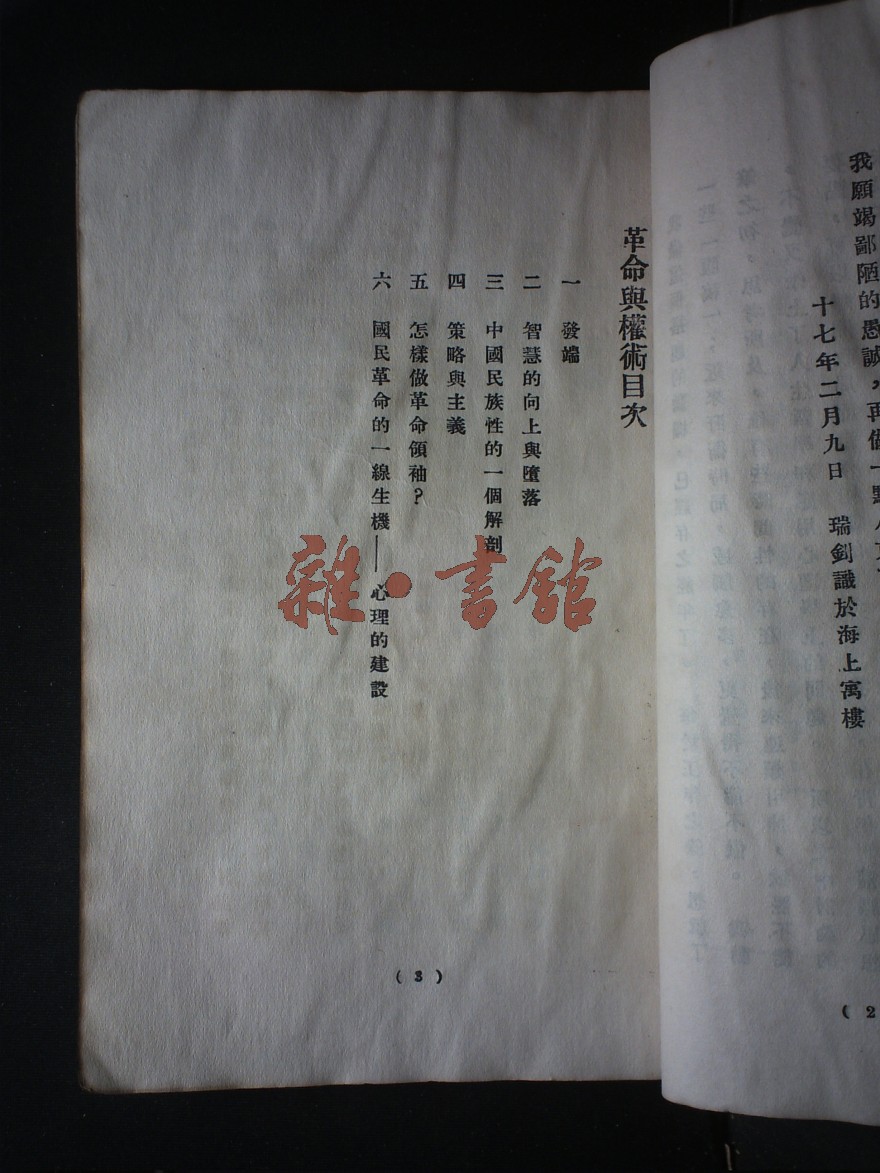 我願竭鄙陋的愚誠，再做一點
十七年二月九日　瑞釗識於海上寓樓
( 2
革命與權術目次
一　發端
二　智慧的向上與墮落
三　中國民族性的一個解剖
四　策略與主義
五　怎樣做革命領袖？
六　國民革命的一線生機——心理的建設
( 3 )
雜·書館